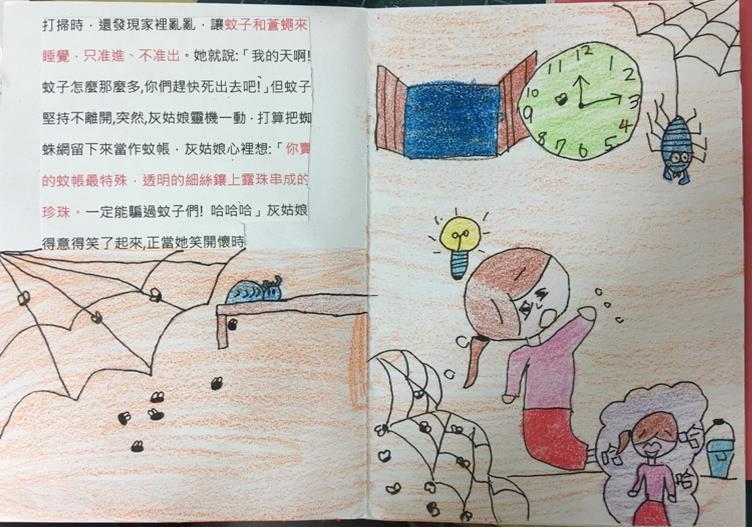 打掃時，還發現家裡亂亂，讓蚊子和蒼蠅來
睡覺，只准進、不准出。她就說:「我的天啊!
蚊子怎麼那麼多,你們趕快死出去吧!」但蚊子
堅持不離開,突然,灰姑娘靈機一動，打算把蜘
蛛網留下來當作蚊帳，灰姑娘心裡想:「你賣
的蚊帳最特殊，透明的細絲鑲上露珠串成的
珍珠。一定能騙過蚊子們! 哈哈哈」灰姑娘
得意得笑了起來,正當她笑開懷時
12
11
1
10
2
9
3
8
4
7
5
6
哈
哈
哈